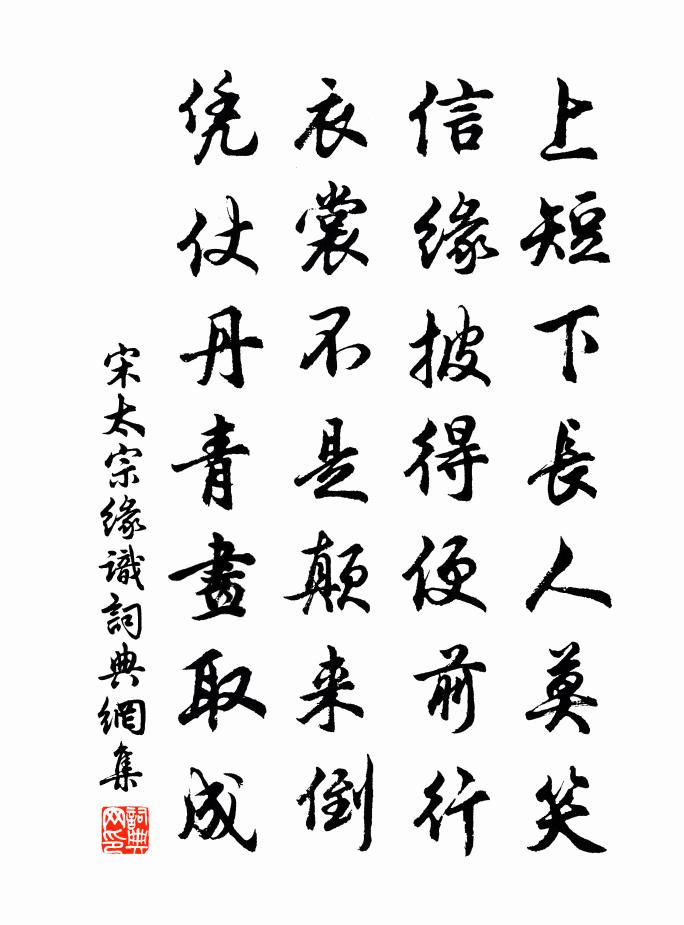 上短下長人莫笑
信緣披得便前行
衣裳不是顛来倒
凭仗丹青畫取成
宋太宗緣識詞典網集
詞典网印